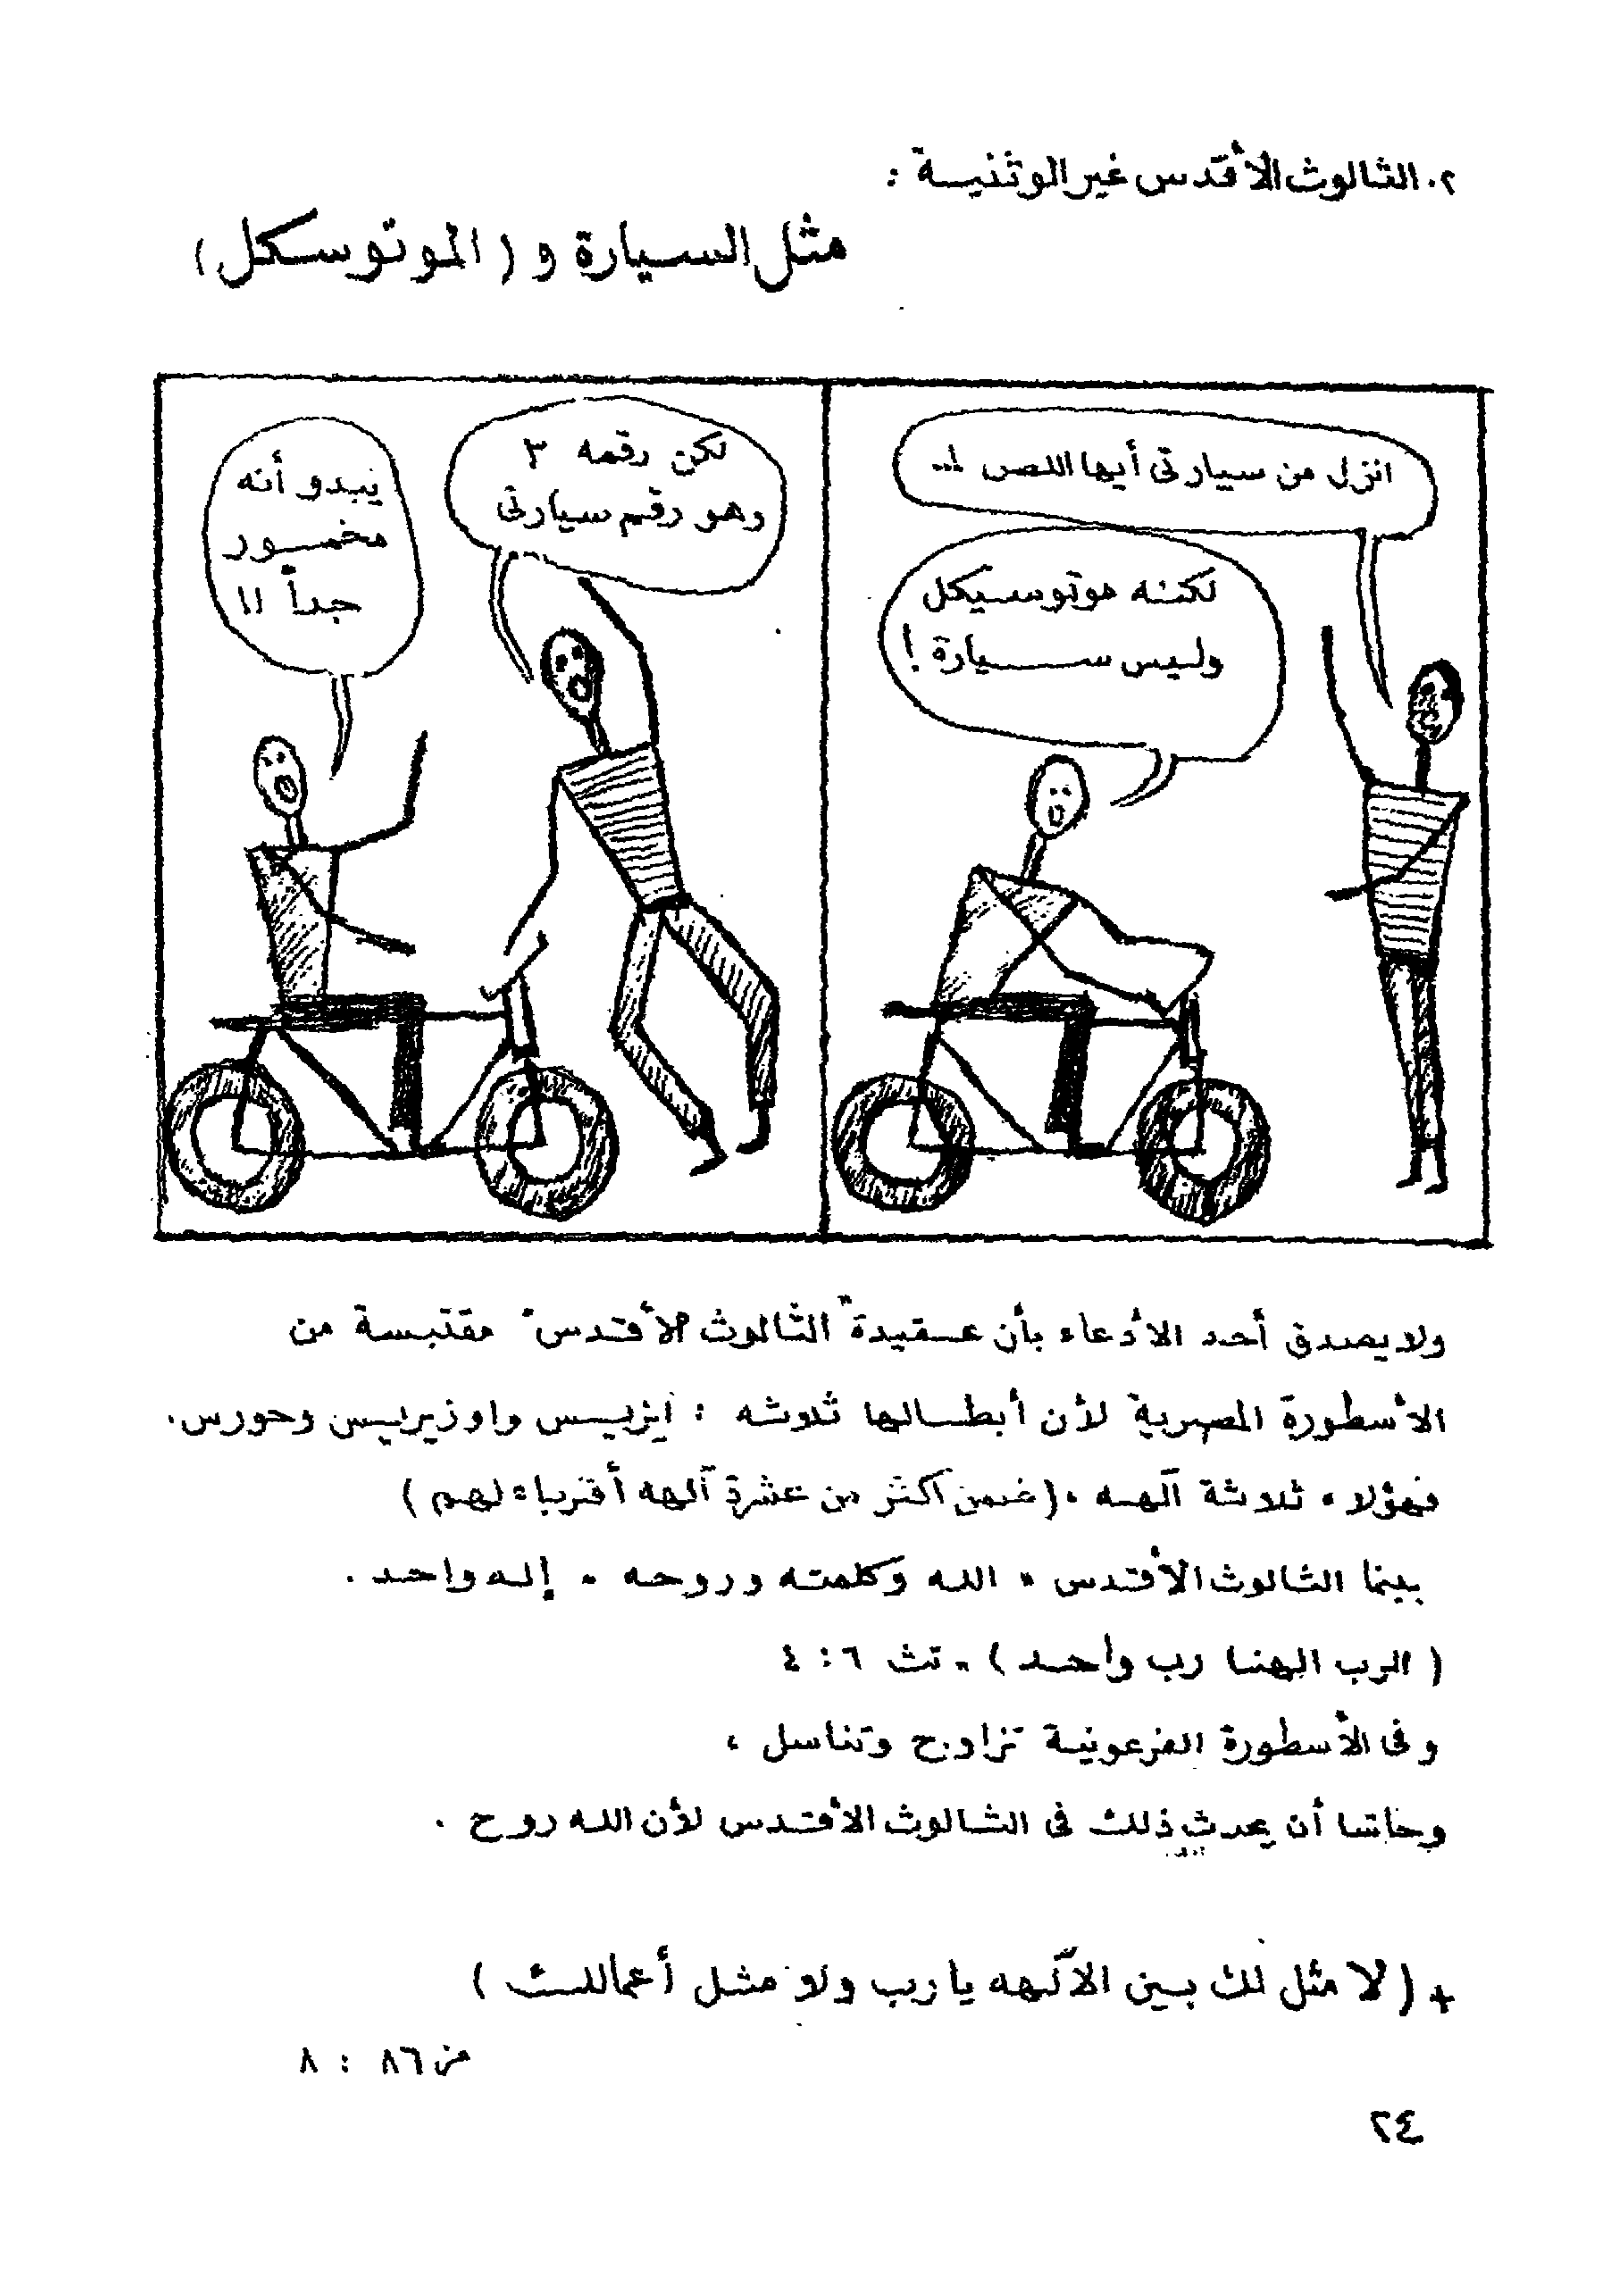 ٢. الثالوث الأقدس غير الوثنية :
مثل السيارة و (الموتوسكل)
انزل من سيارتى أيها اللص !..
لكنه موتوسيكل
وليس سيارة !
لكن رقمه ٣
وهو رقم سيارتى
يبدو أنه
مخمور
جداً !!
ولا يصدق أحد الادعاء بأن عقيدة "الثالوث الأقدس" مقتبسة من
الأسطورة المصرية لأن أبطالها ثلاثه : ايزيس واوزيريس وحورس.
فهؤلاء ثلاثة آلهه ، (ضمن أكثر من عشرة آلهه أقرباء لهم)
بينما الثالوث الأقدس " الله وكلمته وروحه " إله واحد .
( الرب الهنا رب واحد ) - تث ٦ : ٤
وفى الأسطورة الفرعونية تزاوج وتناسل ،
وحاشا أن يحدث ذلك فى الثالوث الأقدس لأن الله روح .
+ (لا مثل لك بين الآلهه يا رب ولا مثل أعمالك )
مز ٨٦ : ٨
٢٤